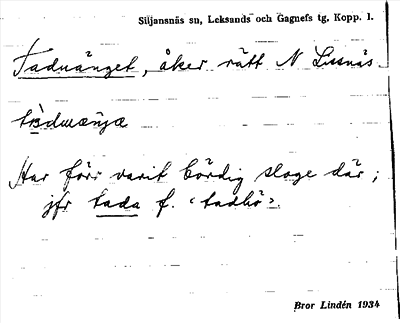 Siljansnäs sn, Leksands och Gagnefs tg. Kopp. l.
Tadvänget, åker rätt N Lisnäs
Har förr varit bördig slage där;
jfr tada f. "tadhö".
Bror Lindén 1934